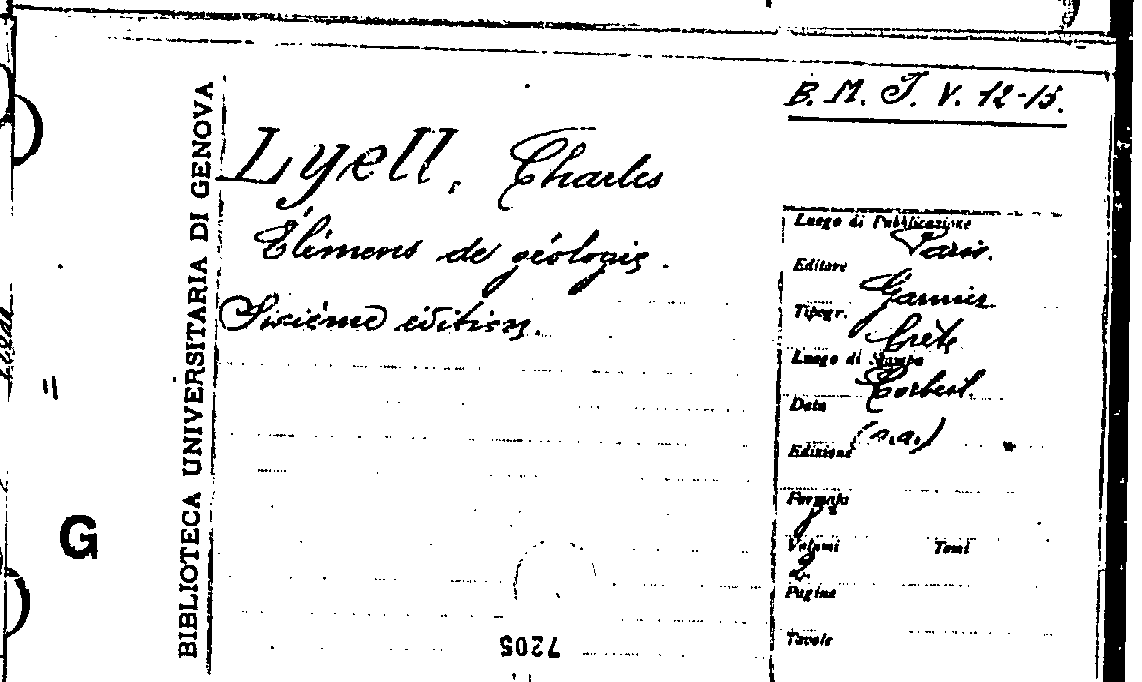 B. M. J. V. 12-15.
BIBLIOTECA UNIVERSITARIA DI GENOVA
Lyell, Charles
Élémens de géologie.
Sixième édition.
Luogo di Pubblicazione
Paris.
Editore
Garnier
Tipogr.
Crété
Luogo di Stampa
Corbeil.
Data
(s.a.)
Edizione
Formato
8º
Volumi Tomi
2.
Pagine
Tavole
7205
G